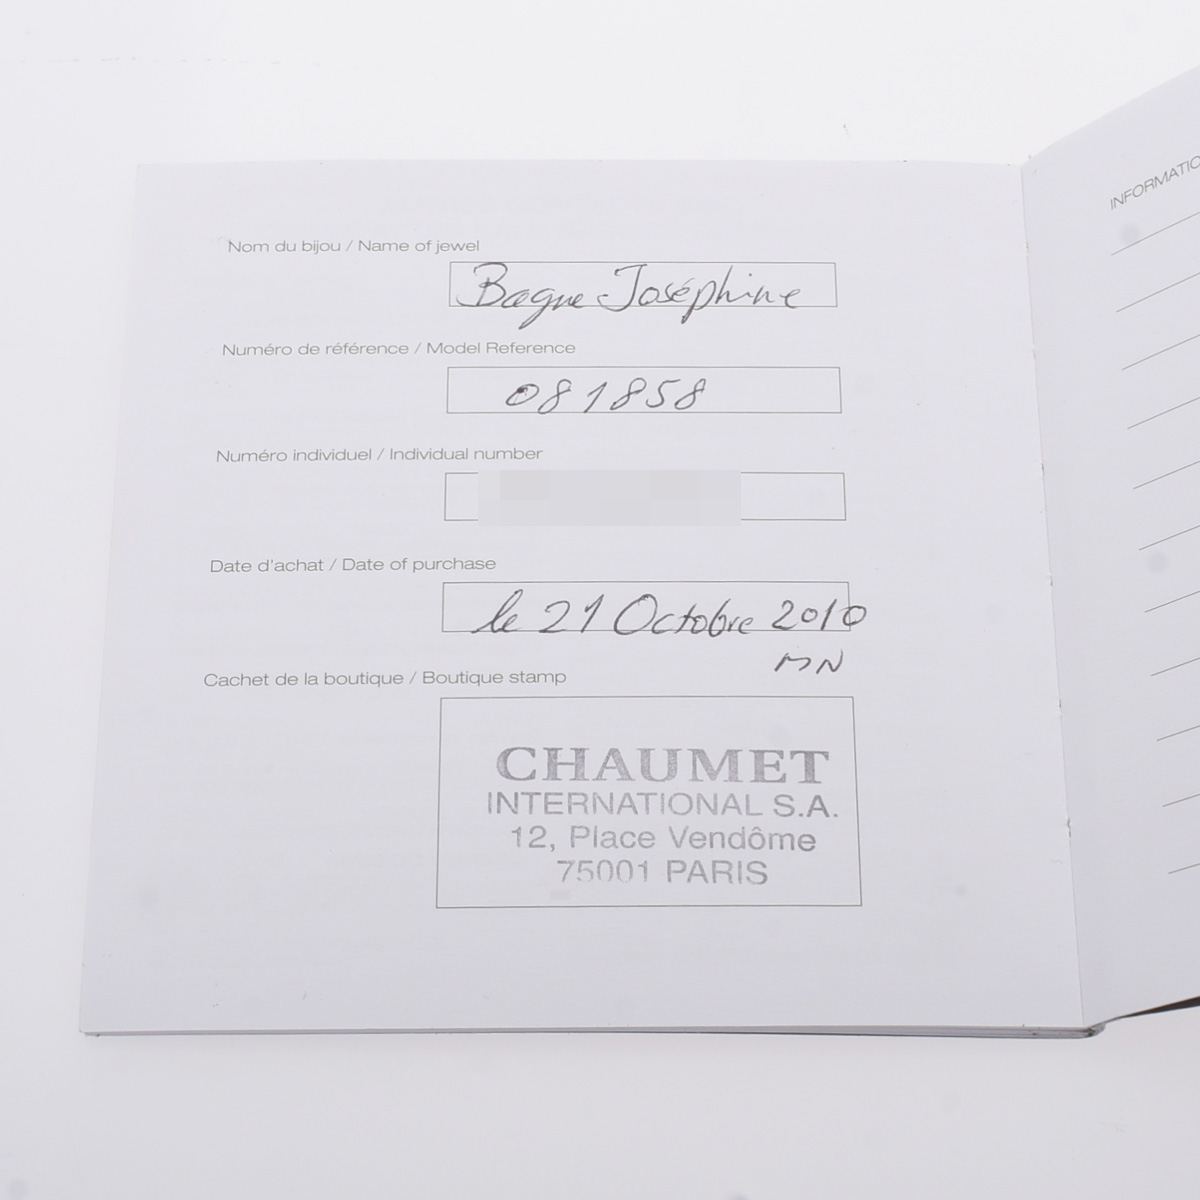 Nom du bijou / Name of jewel
Bague Joséphine
Numéro de référence / Model Reference
081858
Numéro individuel / Individual number
Date d'achat / Date of purchase
le 21 Octobre 2010
MN
Cachet de la boutique / Boutique stamp
CHAUMET
INTERNATIONAL S.A.
12, Place Vendôme
75001 PARIS
INFORMATIO